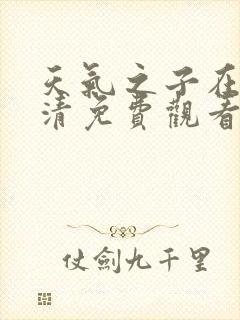 天氣之子在
清免費觀看
仗劍九千里